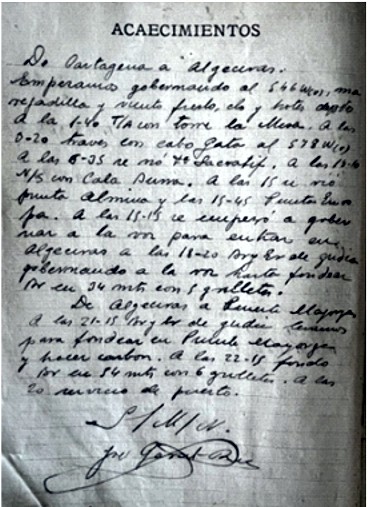 ACAECIMIENTOS
De Cartagena a Algeciras.
Empezamos gobernando al S46W(v), ma
rejadilla y viento fresco, clo y htes
A la 1-40 T/A con torre la Mesa. A las
0-20 través con cabo Gata al S78W(v)
A las 6-35 se vió Pta Sacratif. A las
N/S con Cala Burra. A las 15 se vió
punta Almina y las 15-45 Punta Euro
pa. A las se empezó a gober
nar a la voz para entrar en
Algeciras a las 18-20 Br y Er de guardia
gobernando a la voz hasta fondear
Br en 34 mts con 5 grilletes.
De Algeciras a Puente Mayorga
A las 21-15 Br y Er de guardia levamos
para fondear en Puente Mayorga
y hacer carbon. A las 22-15 fondo
Br en 34 mts con 6 grilletes. A las
20 servicio de puerto.
S/M/N.